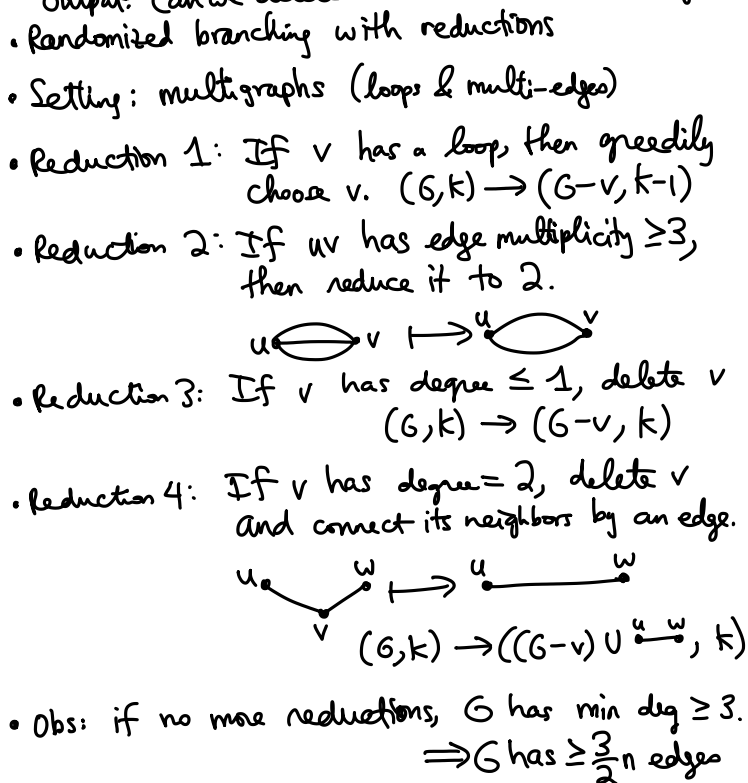 • Randomized branching with reductions
• Setting: multigraphs (loops & multi-edges)
• Reduction 1: If v has a loop, then greedily
choose v. (G,k) → (G-v, k-1)
• Reduction 2: If uv has edge multiplicity ≥3,
then reduce it to 2.
u v ↦ u v
• Reduction 3: If v has degree ≤ 1, delete v
(G,k) → (G-v, k)
• Reduction 4: If v has degree = 2, delete v
and connect its neighbors by an edge.
u w v ↦ u w
(G,k) → ((G-v) ∪ u w, k)
• Obs: if no more reductions, G has min deg ≥ 3.
⟹ G has ≥ 3/2 n edges